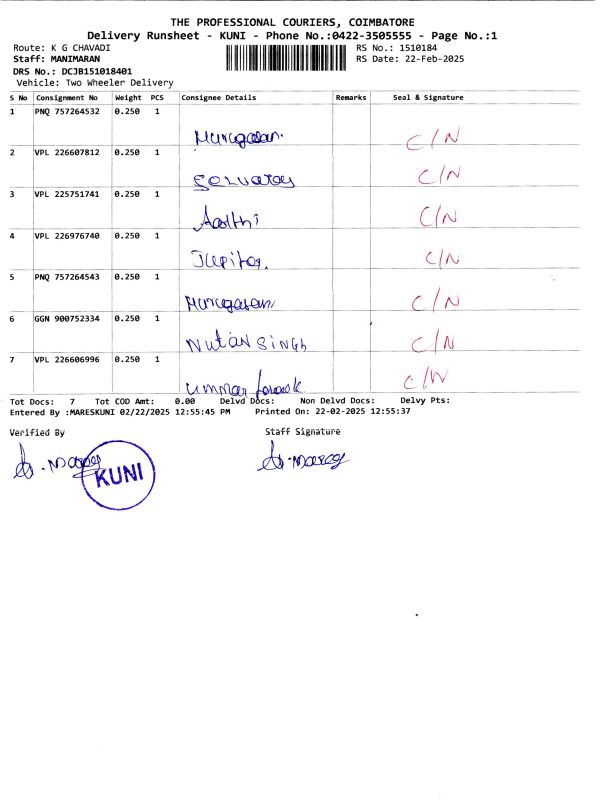 THE PROFESSIONAL COURIERS, COIMBATORE
Delivery Runsheet - KUNI - Phone No.:0422-3505555 - Page No.:1
Route: K G CHAVADI RS No.: 1510184
Staff: MANIMARAN RS Date: 22-Feb-2025
DRS No.: DCJB151018401
Vehicle: Two Wheeler Delivery
S No Consignment No Weight PCS Consignee Details Remarks Seal & Signature
1 PNQ 757264532 0.250 1
Murugasan. C/N
2 VPL 226607812 0.250 1
Selvaraj C/N
3 VPL 225751741 0.250 1
Aarthi C/N
4 VPL 226976740 0.250 1
Jupiter. C/N
5 PNQ 757264543 0.250 1
Murugasan C/N
6 GGN 900752334 0.250 1
Nutan Singh C/N
7 VPL 226606996 0.250 1
Ummar C/N
Tot Docs: 7 Tot COD Amt: 0.00 Delvd Docs: Non Delvd Docs: Delvy Pts:
Entered By :MARESKUNI 02/22/2025 12:55:45 PM Printed On: 22-02-2025 12:55:37
Verified By Staff Signature
KUNI